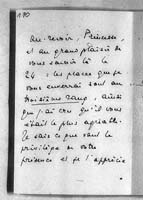 180
au revoir, Princesse,
et au grand plaisir de
vous savoir là le
24 ; les places que je
vous enverrai sont au
troisième rang, ainsi
que j'ai cru qu'il vous
était le plus agréable.
Je sais ce que vaut le
privilège de votre
présence et je l'apprécie